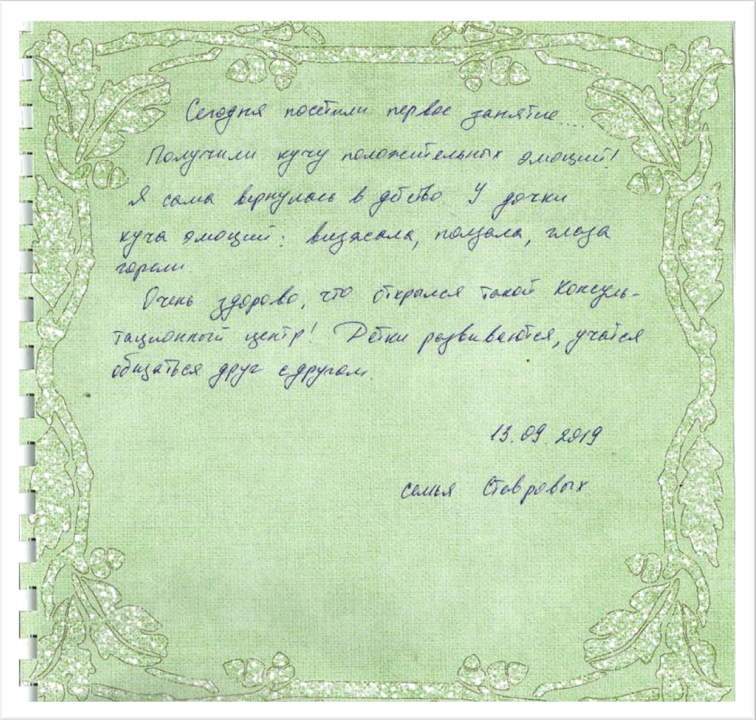 Сегодня посетили первое занятие...
Получили кучу положительных эмоций!
Я сама вернулась в детство. У дочки
куча эмоций: визжала, ползала, глаза
горели
Очень здорово, что открылся такой Консуль-
тационный центр! Детки развиваются, учатся
общаться друг с другом.
13.09.2019
семья Ставровых